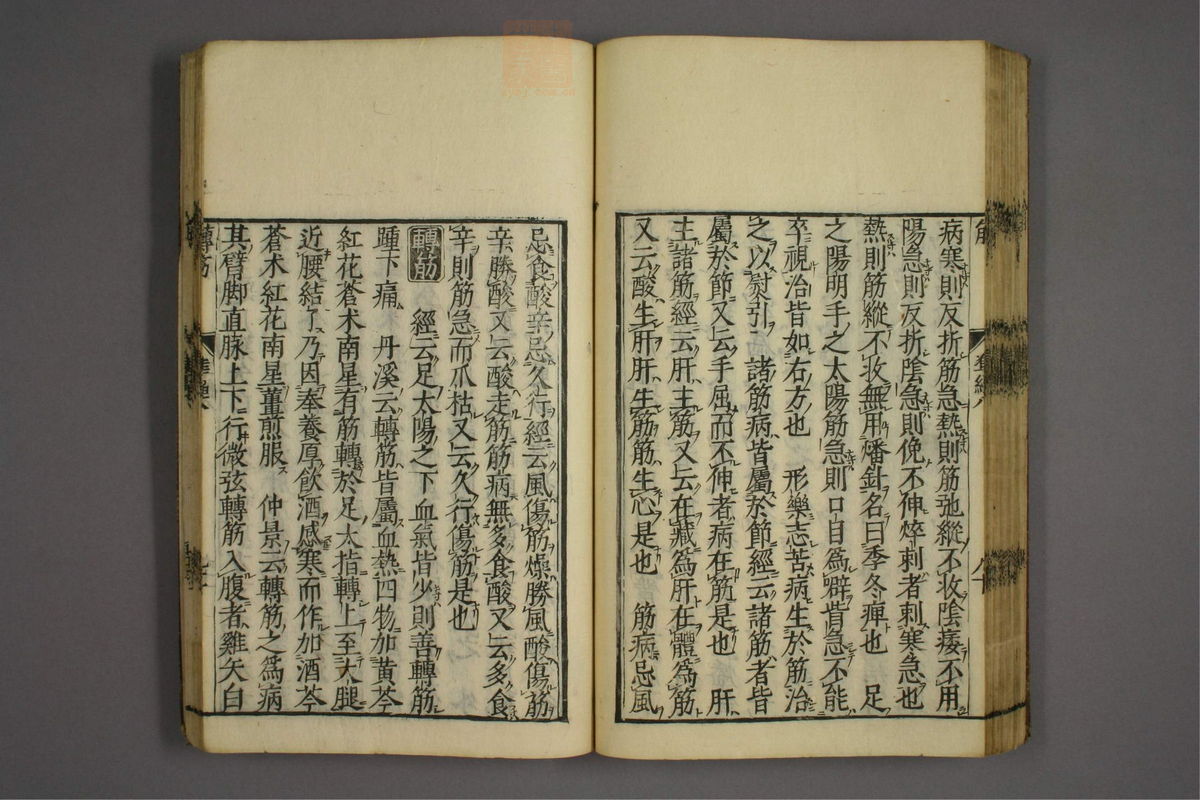 病寒則反折筋急熱則筋弛縱不收陰痿不用
陽急則反折陰急則俛不伸焠刺者刺寒急也
熱則筋縱不收無用燔針名曰季冬痺也　足
之陽明手之太陽筋急則口目為噼眥急不能
卒視治皆如右方也　形樂志苦病生於筋治
之以熨引　諸筋病皆屬於節經云諸筋者皆
屬於節又云手屈而不伸者病在筋是也　肝
主諸筋經云肝主筋又云在藏為肝在體為筋
又云酸生肝肝生筋筋生心是也　筋病忌風
忌食酸辛忌久行經云風傷筋燥勝風酸傷筋
辛勝酸又云酸走筋筋病無多食酸又云多食
辛則筋急而爪枯又云久行傷筋是也
轉筋　經云足太陽之下血氣皆少則善轉筋
踵下痛　丹溪云轉筋皆屬血熱四物加黃芩
紅花蒼朮南星有筋轉於足大指轉上至大腿
近腰結了乃因奉養厚飲酒感寒而作加酒芩
蒼朮紅花南星薑煎服　仲景云轉筋之為病
其臂脚直脉上下行微弦轉筋入腹者雞矢白
轉筋